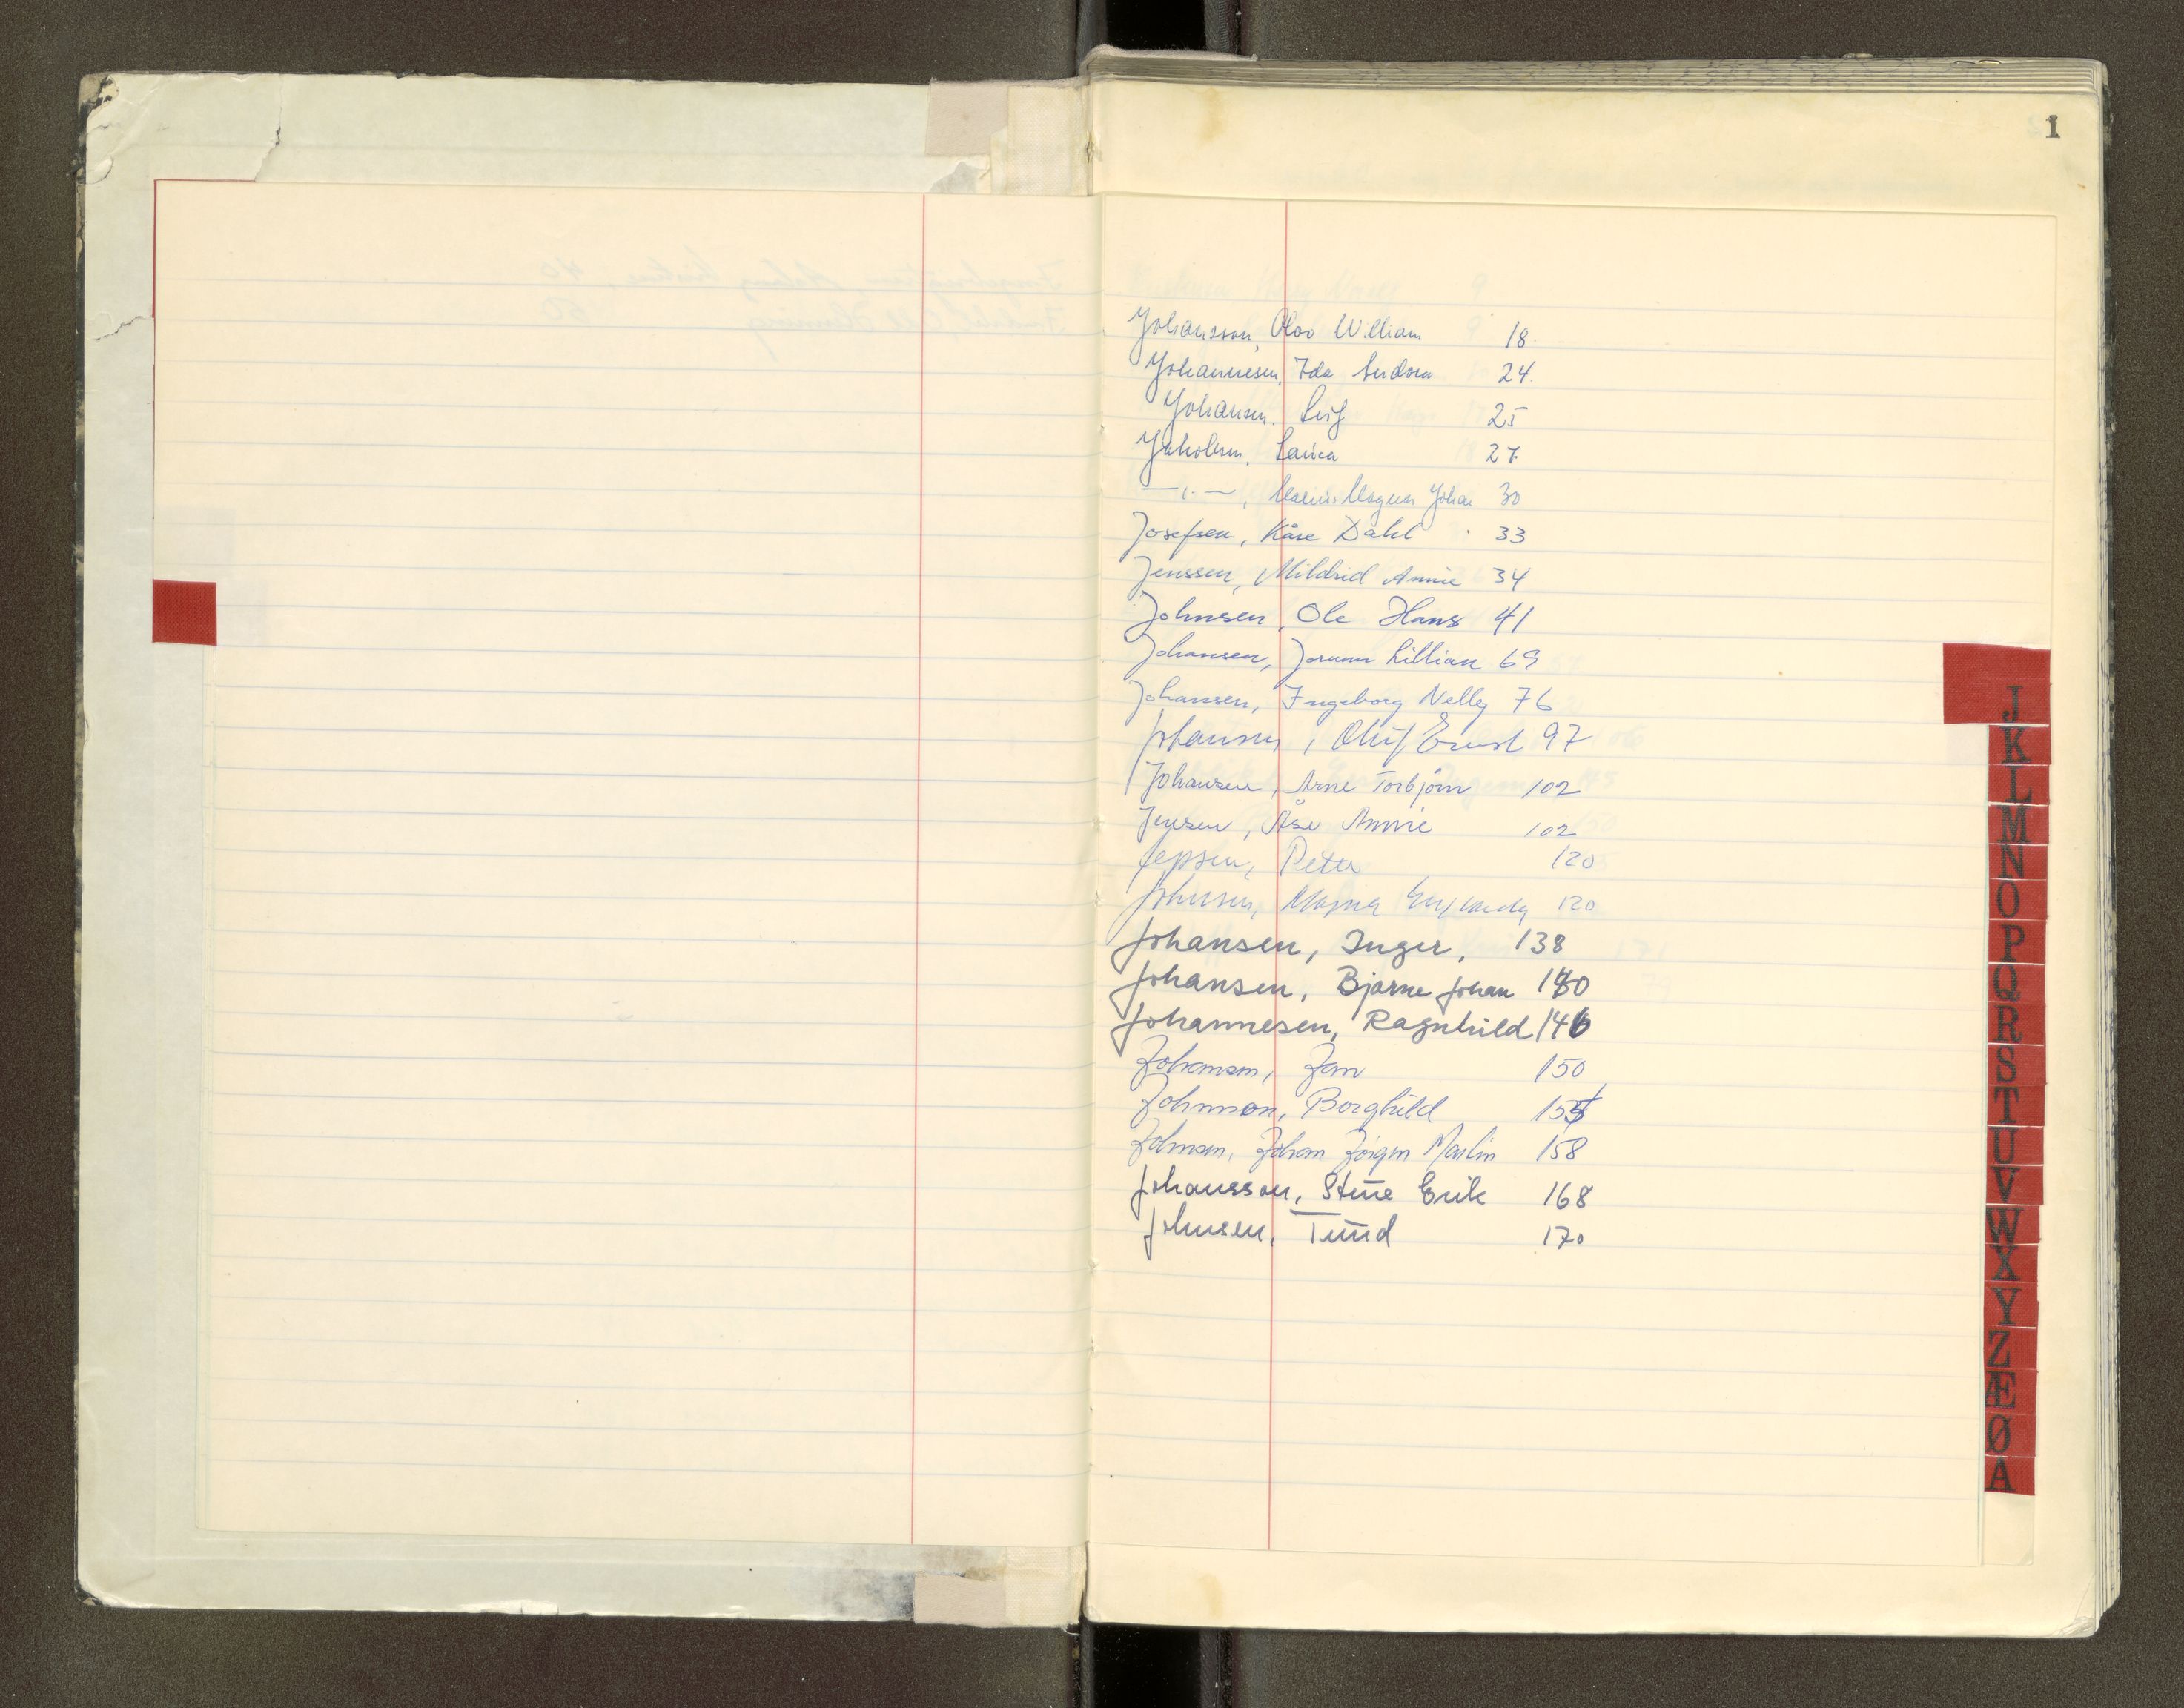 1
Johansson, Olav William 18.
Johannesen, Ida 24.
Johansen. Leif 25
Jakobsen. Laura 27
—〃—, Magnus Johan 30
Josefsen, Kåre Dahl 33
Jenssen, Mildrid Annie 34
Johnsen, Ole Hans 41
Johansen, Jorunn Lillian 69
Johansen, Ingeborg Nelly 76
Johansen, Oluf Ernst 97
Johansen, Arne Torbjörn 102
Jensen, Åse Annie 102
Jepsen, Peter 120
Johnsen, Magna 120
Johansen, Inger, 138
Johansen, Bjarne Johan 140
Johannesen, Ragnhild 146
Johansen, Jan 150
Johnson, Borghild
Johnsen, Johan Jörgen Martin 158
Johansson, Stene Erik 168
Johnsen, 170
J
K
L
M
N
O
P
Q
R
S
T
U
V
W
X
Y
Z
Æ
Ø
A